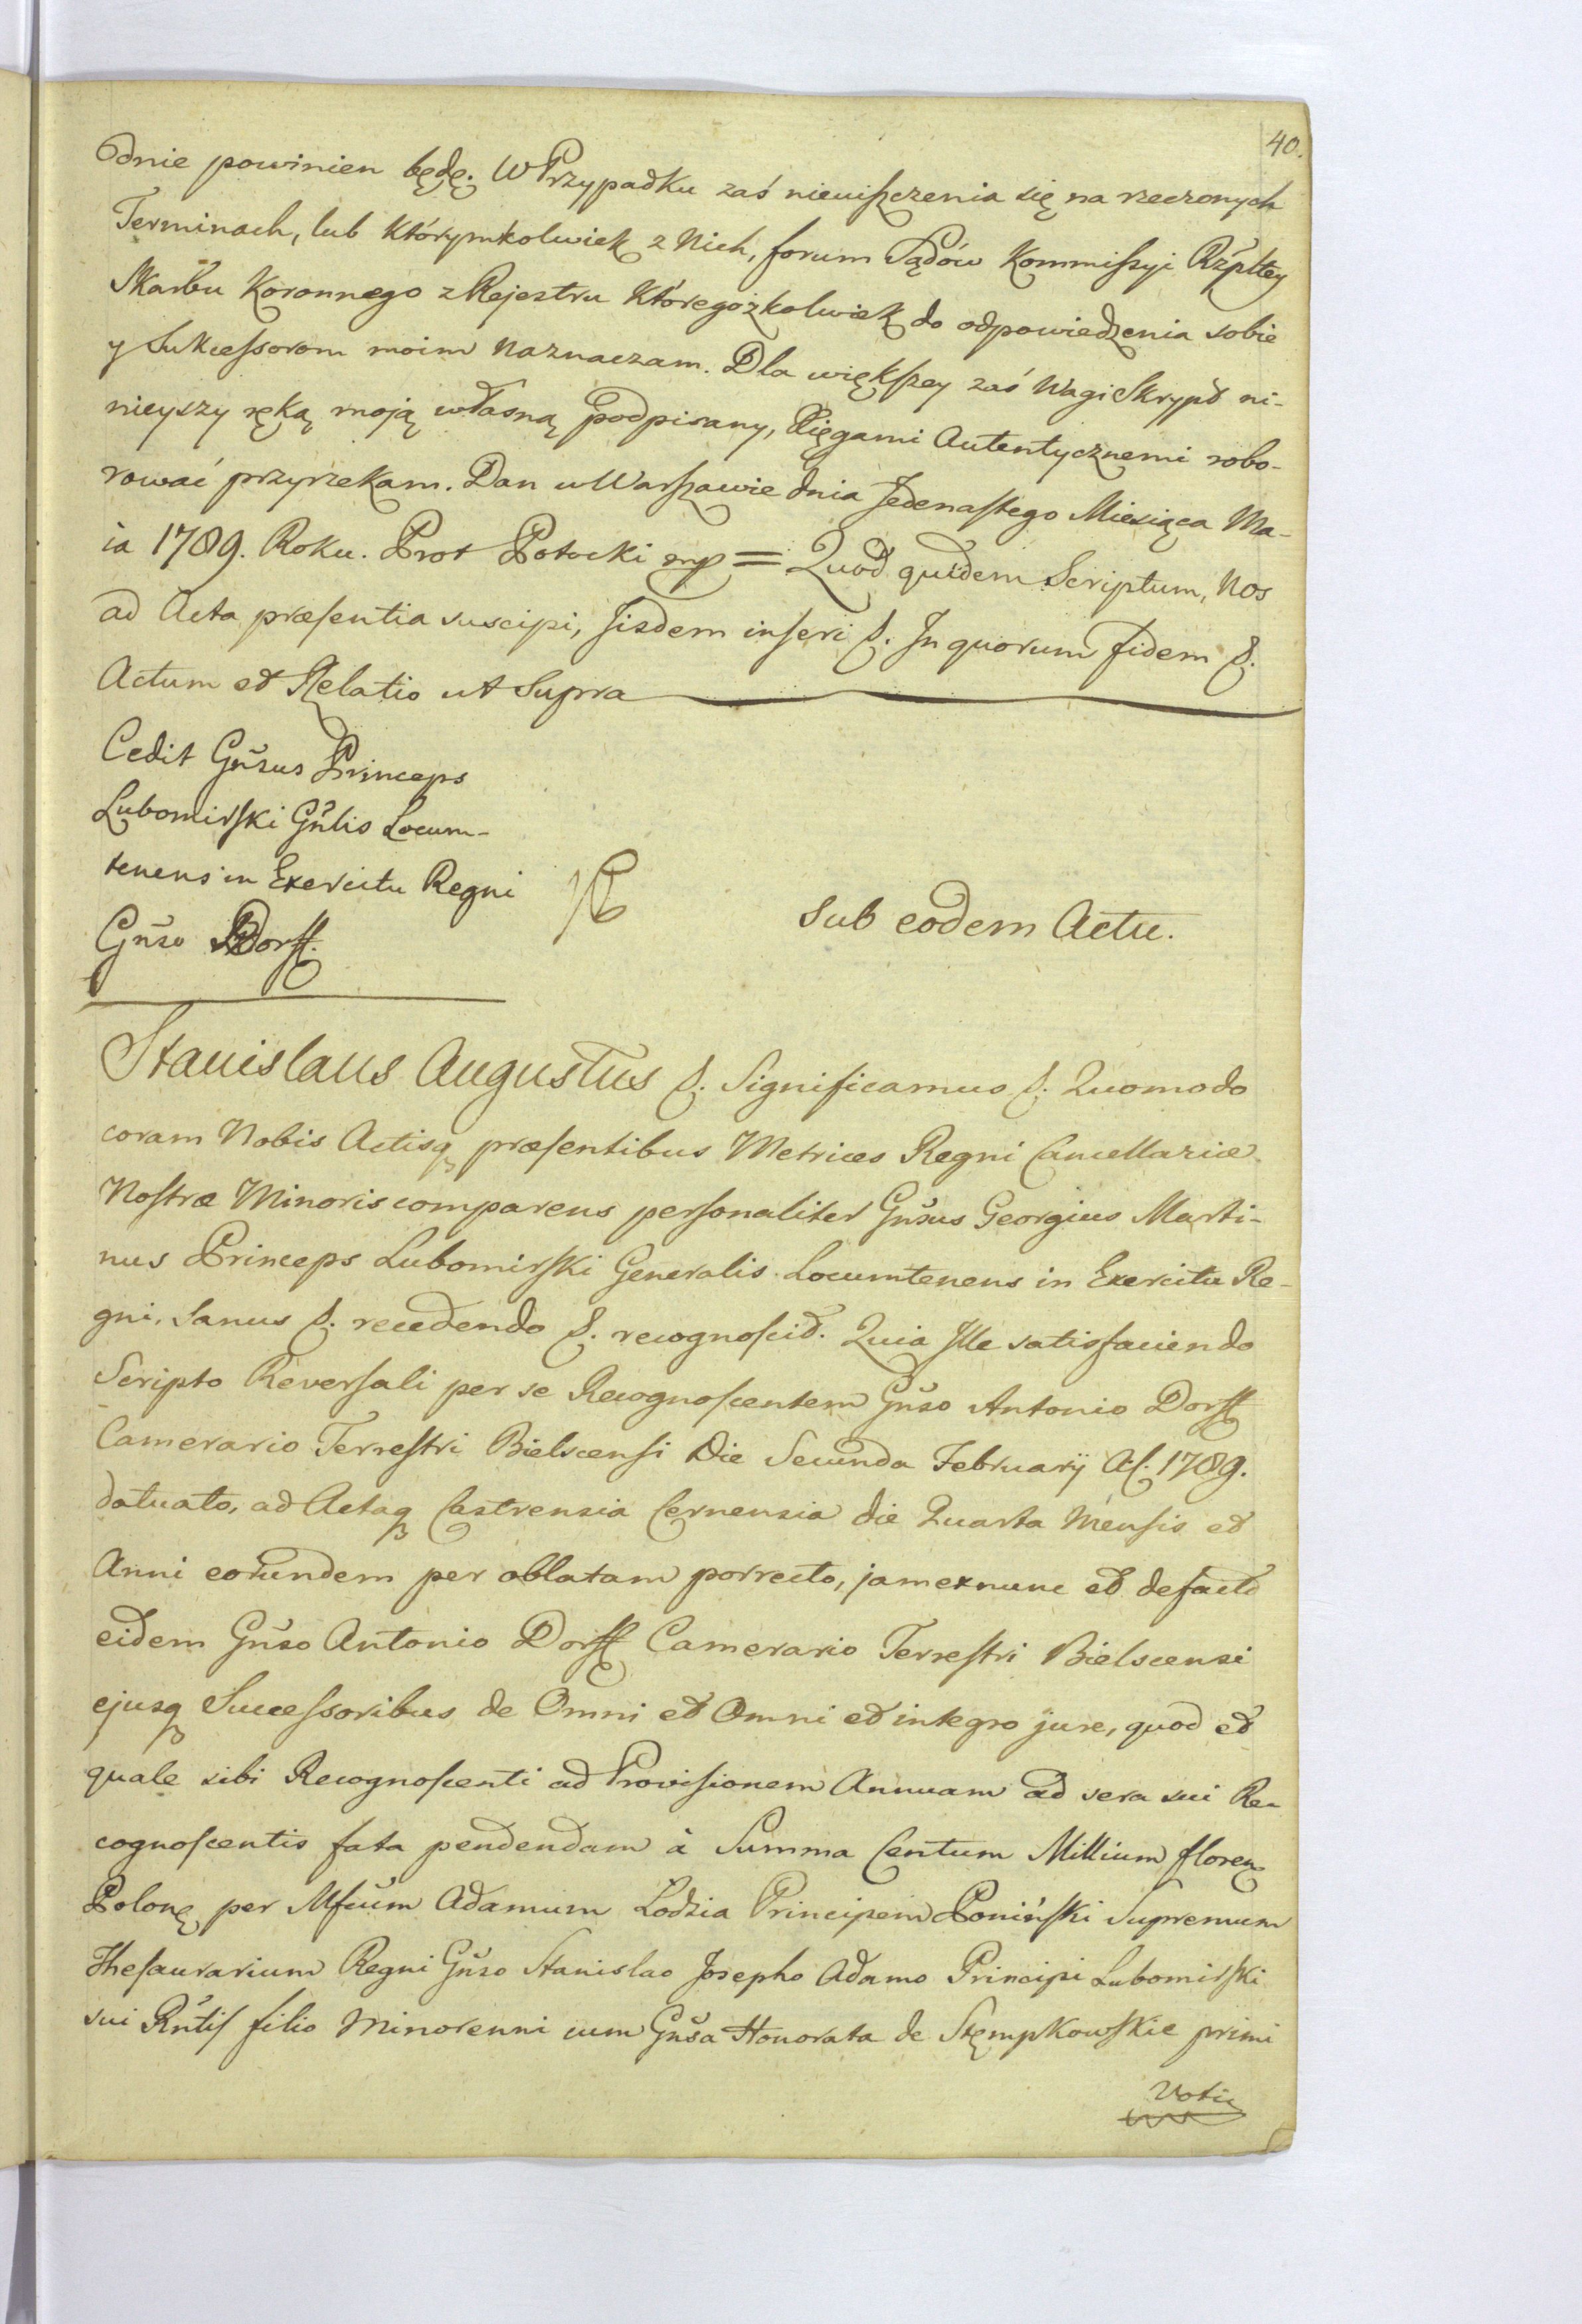 40.
odnie powinien będę. W Przypadku zaś nieuiszczenia się na rzeczonych
Terminach, lub którymkolwiek z Nich, forum Sądów Kommissyi Rzpltey
Skarbu Koronnego z Rejestru któregożkolwiek do odpowiedzenia sobie
y Sukcessorom moim naznaczam. Dla większey zaś Wagi Skrypt ni-
nieyszy ręką moją własną podpisany, Xięgami Autentycznemi robo-
rować przyrzekam. Dan w Warszawie dnia Jedenastego Miesiąca Ma-
ia 1789. Roku. Prot Potocki mp = Quod quidem Scriptum, Nos
ad Acta præsentia suscipi, Jisdem inseri &. Jn quorum fidem &.
Actum et Relatio ut Supra
Cedit Gnsus Princeps
Lubomirski Gnlis Locum-
tenens in Exercitu Regni
Gnso Dorff.
Sub eodem Actu.
Stanislaus Augustus &. Significamus &. Quomodo
coram Nobis Actisq præsentibus Metrices Regni Cancellariæ
Nostræ Minoris comparens personaliter Gnsus Georgius Marti-
nus Princeps Lubomirski Generalis Locumtenens in Exercitu Re-
gni, Sanus &. recedendo &. recognoscit. Quia Jlle satisfaciendo
Scripto Reversali per se Recognoscentem Gnso Antonio Dorff
Camerario Terrestri Bielscensi Die Secunda Februarij A. 1789.
datuato, ad Actaq Castrensia Cernensia die Quarta Mensis et
Anni eorundem per oblatam porrecto, jam exnunc et defacto
eidem Gnso Antonio Dorff Camerario Terrestri Bielscensi
ejusq Successoribus de Omni et Omni et integro jure, quod et
quale sibi Recognoscenti ad Provisionem Annuam ad sera sui Re-
cognoscentis fata pendendam à Summa Centum Millium floren
Polon per Mfcum Adamum Lodzia Principem Poniński Supremum
Thesaurarium Regni Gnso Stanislao Josepho Adamo Principi Lubomirski
sui Rntis filio Minorenni cum Gnsa Honorata de Stempkowskie primi
Voti